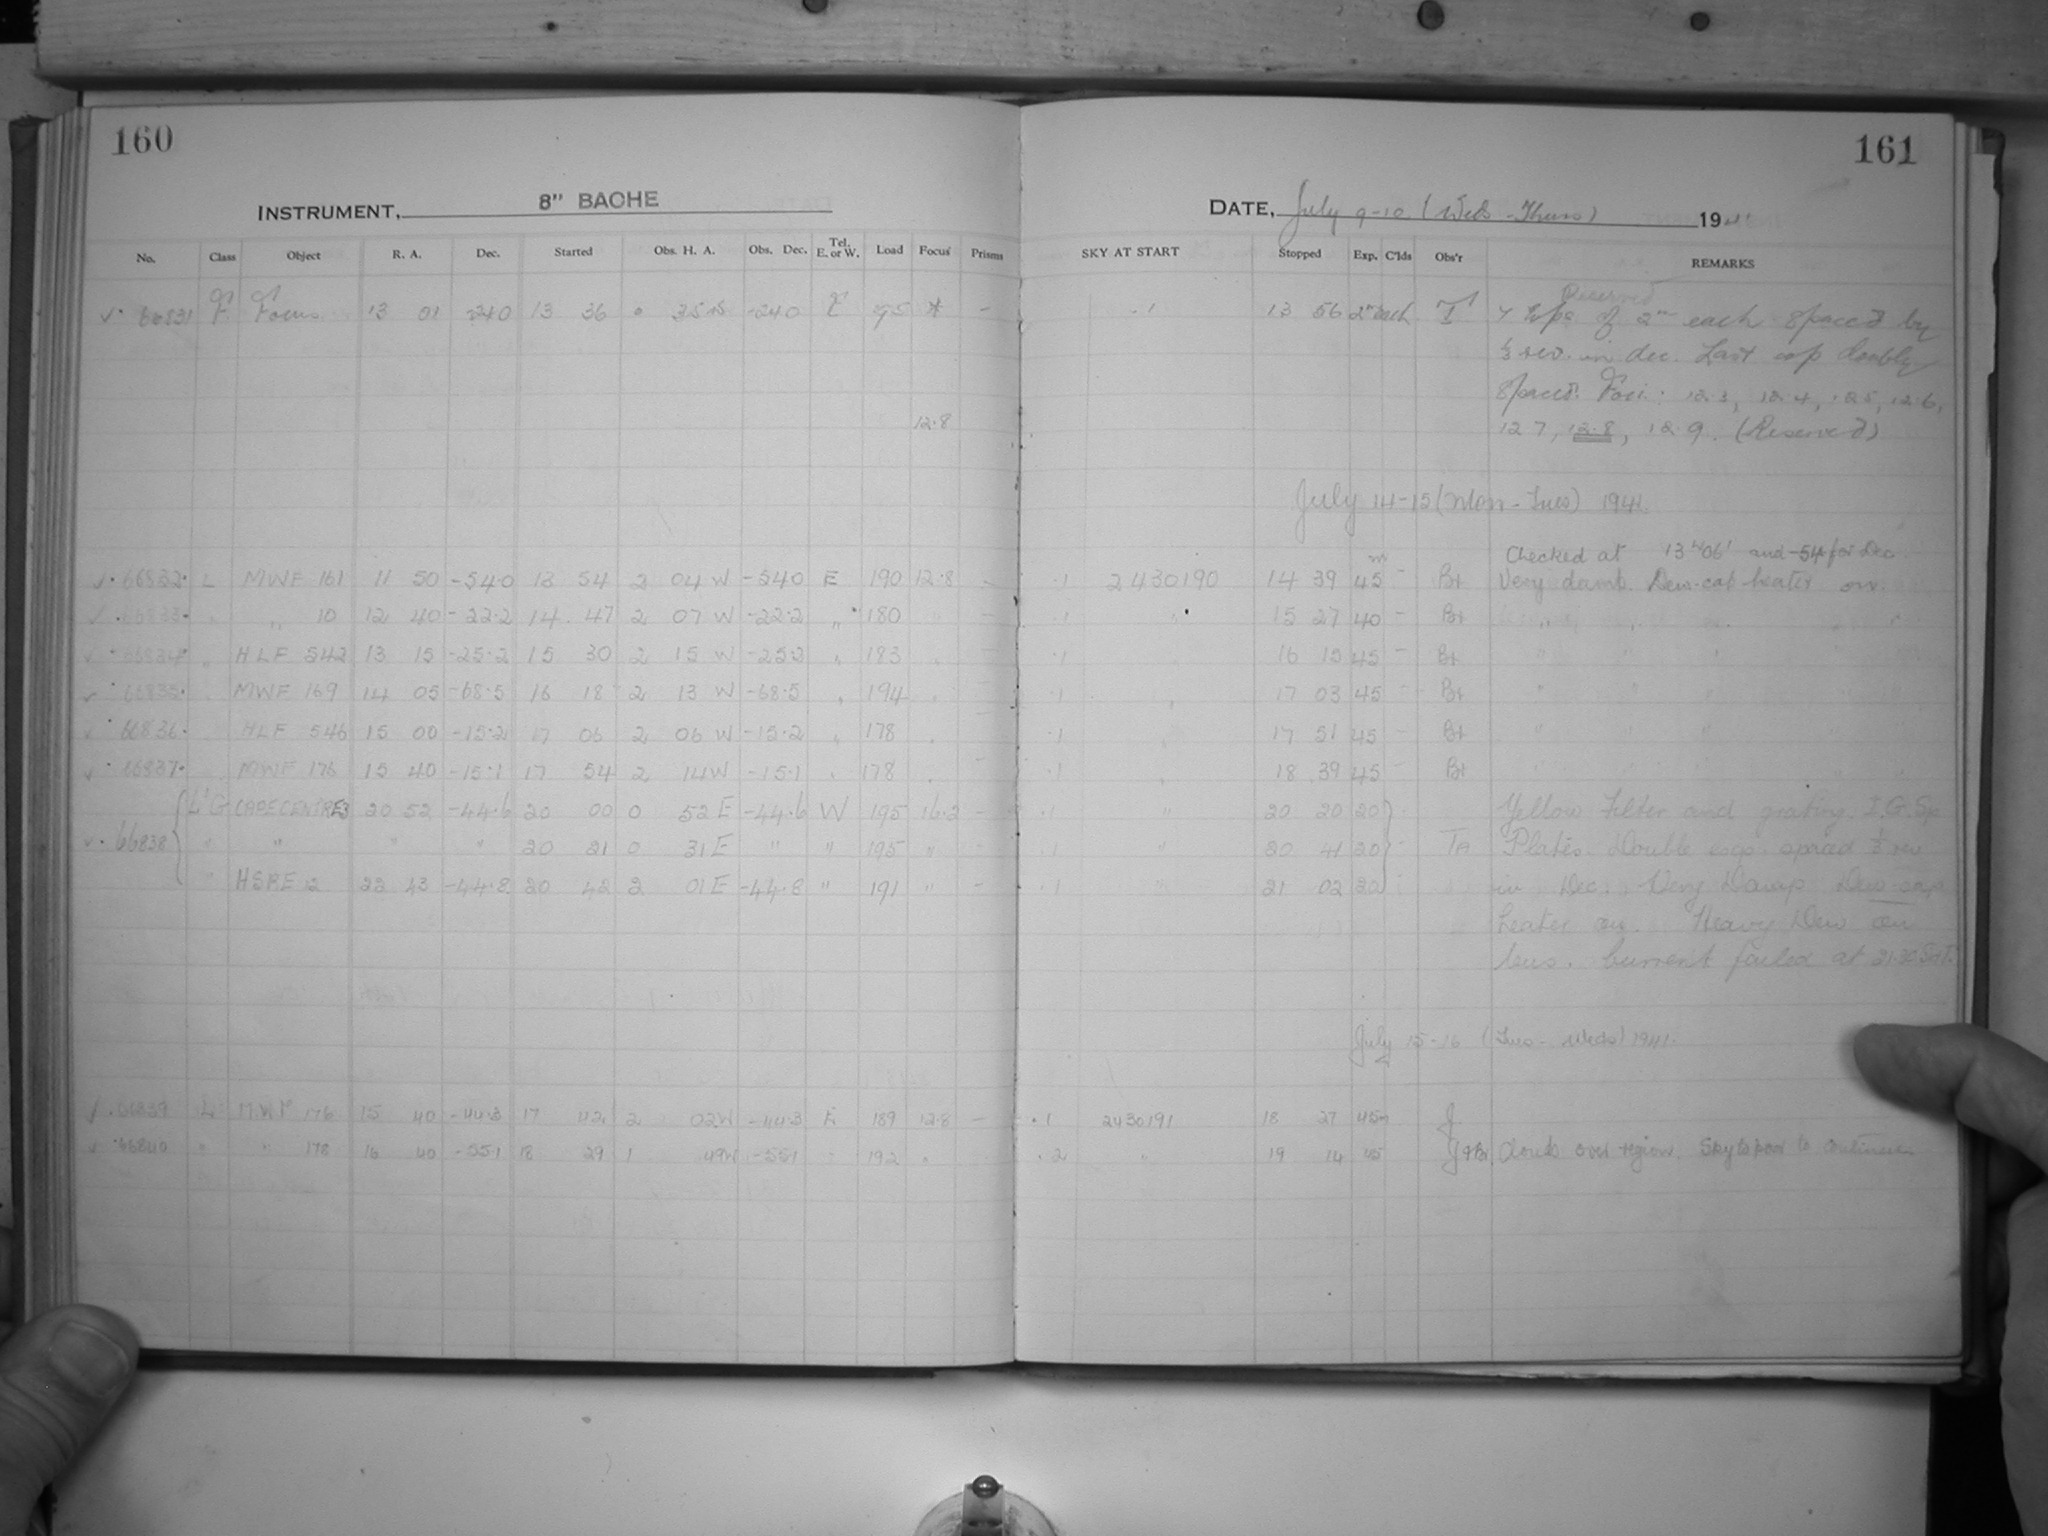 160
161
INSTRUMENT, 8" BACHE
DATE, July 9-10 (Weds - Thurs) 1941
No. Class Object R. A. Dec. Started Obs. H. A. Obs. Dec. Tel. E. or W. Load Focus Prisms SKY AT START Stopped Exp. C'lds Obs'r REMARKS
Reserved
✓ 66831 F Focus 13 01 -240 13 36 0 35 -240 E 95 * - .1 13 56 2m each 7 Exps of 2m each spaced by
⅓ rev. in dec. Last exp doubly
spaced. Foci: 12.3, 12.4, 12.5, 12.6,
12.8 12.7, 12.8, 12.9. (Reserved)
July 14-15 (Mon - Tues) 1941
Checked at 13h06' and -54 for Dec
✓ 66832 L MWF 161 11 50 -54.0 13 54 2 04 W -54.0 E 190 12.8 - .1 2430190 14 39 45m - Bt Very damp. Dew-cap heater on.
✓ 66833 " " 10 12 40 -22.2 14 47 2 07 W -22.2 " 180 " - .1 " 15 27 40 - Bt " " " " "
✓ 66834 " HLF 542 13 15 -25.2 15 30 2 15 W -25.2 " 183 " - .1 " 16 15 45 - Bt " " " " "
✓ 66835 " MWF 169 14 05 -68.5 16 18 2 13 W -68.5 " 194 " - .1 " 17 03 45 - Bt " " " "
✓ 66836 " HLF 546 15 00 -15.2 17 06 2 06 W -15.2 " 178 " - .1 " 17 51 45 - Bt " " " " "
✓ 66837 " MWF 176 15 40 -15.1 17 54 2 14 W -15.1 " 178 " - .1 " 18 39 45 - Bt " " " " "
L'G CAPE CENTRE 20 52 -44.6 20 00 0 52 E -44.6 W 195 16.2 - .1 " 20 20 20 Yellow Filter and grating. I.G. Sp
✓ 66838 " " " " 20 21 0 31 E " " 195 " - .1 " 20 41 20 - TA Plates. Double exp. spaced ½ rev
" HSPE 12 22 43 -44.8 20 42 2 01 E -44.8 " 191 " - .1 " 21 02 20 in Dec. Very Damp Dew-cap
heater on. Heavy Dew on
lens. Current failed at 21.30
July 15-16 (Tues - Weds) 1941.
✓ 66839 L MWF 176 15 40 -44.3 17 42 2 02W -44.3 E 189 12.8 - .1 2430191 18 27 45m J
✓ 66840 " " 178 16 40 -55.1 18 29 1 49W -55.1 " 192 " .2 " 19 14 45 J Clouds over region. Sky to poor to continue